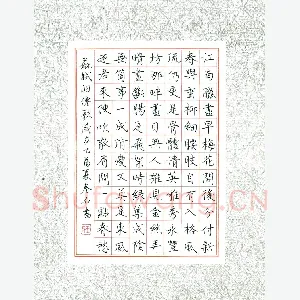 江南臘盡早梅花開後分付新
春與垂柳細腰肢自有入格風
流仍更是骨體清英雅秀永豐
坊那畔盡日無人誰見金絲弄
晴晝斷腸是飛絮時綠葉成陰
無箇事一成消瘦又莫是東風
逐君來便吹散眉間一點春皺
蘇軾洞僊歌